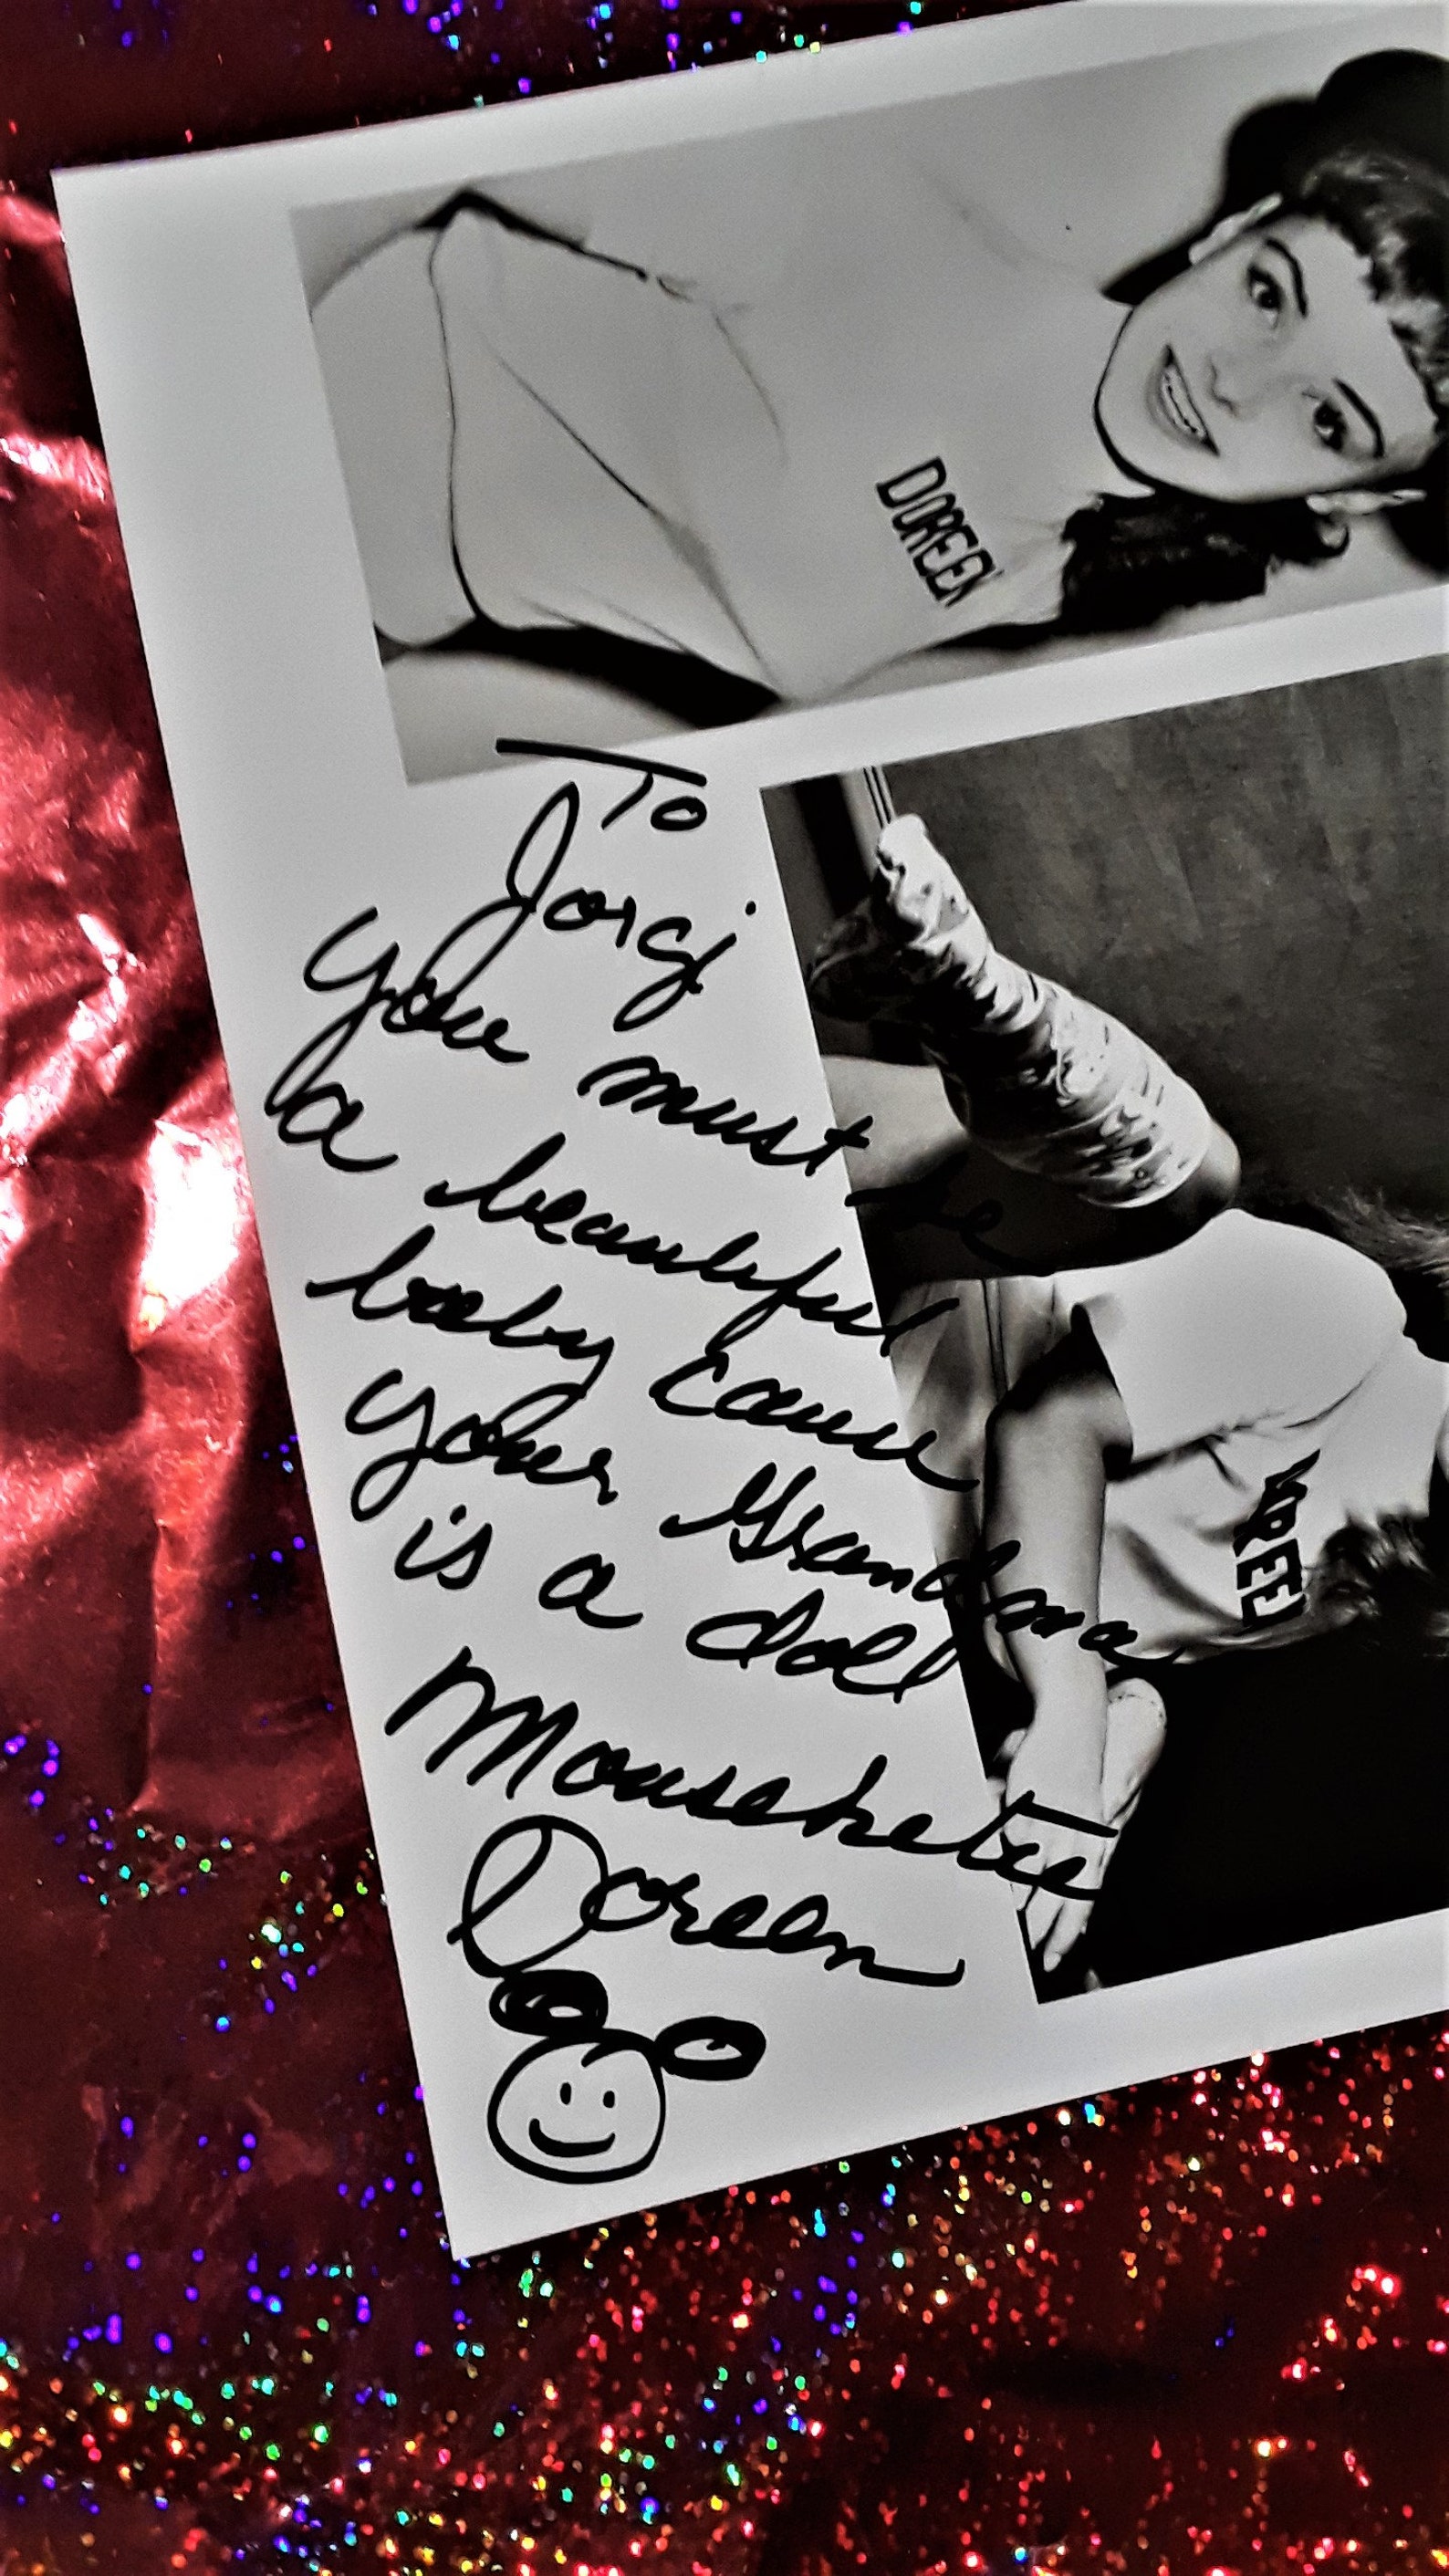 DOREEN
To
Jorgi
You must be
a beautiful
baby cause
your Grandma
is a doll
Mouseketeer
Doreen
OREEN